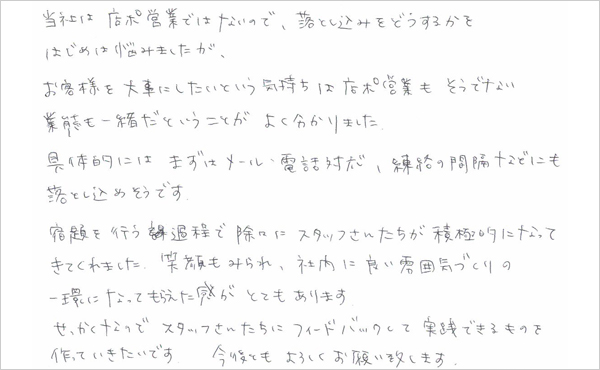 当社は店ポ営業ではないので、落とし込みをどうするかを
はじめは悩みましたが、
お客様を大事にしたいという気持ちは店ポ営業もそうでない
業態も一緒だということがよく分かりました。
具体的にはまずはメール・電話対応、連絡の間隔などにも
落とし込めそうです。
宿題を行う過程で除々にスタッフさんたちが積極的になって
きてくれました。笑顔もみられ、社内に良い雰囲気づくりの
一環になってもらえた感がとてもあります。
せっかくなのでスタッフさんたちにフィードバックして実践できるものを
作っていきたいです。今後ともよろしくお願い致します。